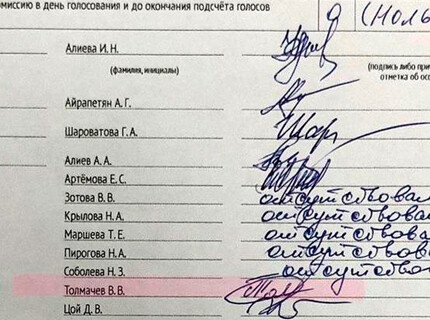 омиссию в день голосования и до окончания подсчёта голосов
0 (Ноль
Алиева И. Н.
(фамилия, инициалы)
(подпись либо при
отметка об ос
Айрапетян А. Г.
Шароватова Г.А.
Алиев А. А.
Артёмова Е.С.
Зотова В. В. отсутствовал
Крылова Н.А. отсутствова
Маршева Т. Е. отсутствова
Пирогова Н.А. отсутствова
Соболева Н. З. отсутство
Толмачев В. В.
Цой Д. В.